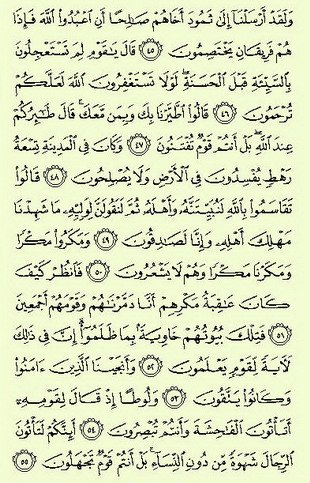 وَلَقَدْ أَرْسَلْنَآ إِلَىٰ ثَمُودَ أَخَاهُمْ صَـٰلِحًا أَنِ ٱعْبُدُوا۟ ٱللَّهَ فَإِذَا
هُمْ فَرِيقَانِ يَخْتَصِمُونَ ﴿٤٥﴾ قَالَ يَـٰقَوْمِ لِمَ تَسْتَعْجِلُونَ
بِٱلسَّيِّئَةِ قَبْلَ ٱلْحَسَنَةِ ۖ لَوْلَا تَسْتَغْفِرُونَ ٱللَّهَ لَعَلَّكُمْ
تُرْحَمُونَ ﴿٤٦﴾ قَالُوا۟ ٱطَّيَّرْنَا بِكَ وَبِمَن مَّعَكَ ۚ قَالَ طَـٰٓئِرُكُمْ
عِندَ ٱللَّهِ ۖ بَلْ أَنتُمْ قَوْمٌ تُفْتَنُونَ ﴿٤٧﴾ وَكَانَ فِى ٱلْمَدِينَةِ تِسْعَةُ
رَهْطٍ يُفْسِدُونَ فِى ٱلْأَرْضِ وَلَا يُصْلِحُونَ ﴿٤٨﴾ قَالُوا۟
تَقَاسَمُوا۟ بِٱللَّهِ لَنُبَيِّتَنَّهُۥ وَأَهْلَهُۥ ثُمَّ لَنَقُولَنَّ لِوَلِيِّهِۦ مَا شَهِدْنَا
مَهْلِكَ أَهْلِهِۦ وَإِنَّا لَصَـٰدِقُونَ ﴿٤٩﴾ وَمَكَرُوا۟ مَكْرًا
وَمَكَرْنَا مَكْرًا وَهُمْ لَا يَشْعُرُونَ ﴿٥٠﴾ فَٱنظُرْ كَيْفَ
كَانَ عَـٰقِبَةُ مَكْرِهِمْ أَنَّا دَمَّرْنَـٰهُمْ وَقَوْمَهُمْ أَجْمَعِينَ
﴿٥١﴾ فَتِلْكَ بُيُوتُهُمْ خَاوِيَةًۢ بِمَا ظَلَمُوٓا۟ ۗ إِنَّ فِى ذَٰلِكَ
لَـَٔايَةً لِّقَوْمٍ يَعْلَمُونَ ﴿٥٢﴾ وَأَنجَيْنَا ٱلَّذِينَ ءَامَنُوا۟
وَكَانُوا۟ يَتَّقُونَ ﴿٥٣﴾ وَلُوطًا إِذْ قَالَ لِقَوْمِهِۦٓ
أَتَأْتُونَ ٱلْفَـٰحِشَةَ وَأَنتُمْ تُبْصِرُونَ ﴿٥٤﴾ أَئِنَّكُمْ لَتَأْتُونَ
ٱلرِّجَالَ شَهْوَةً مِّن دُونِ ٱلنِّسَآءِ ۚ بَلْ أَنتُمْ قَوْمٌ تَجْهَلُونَ ﴿٥٥﴾